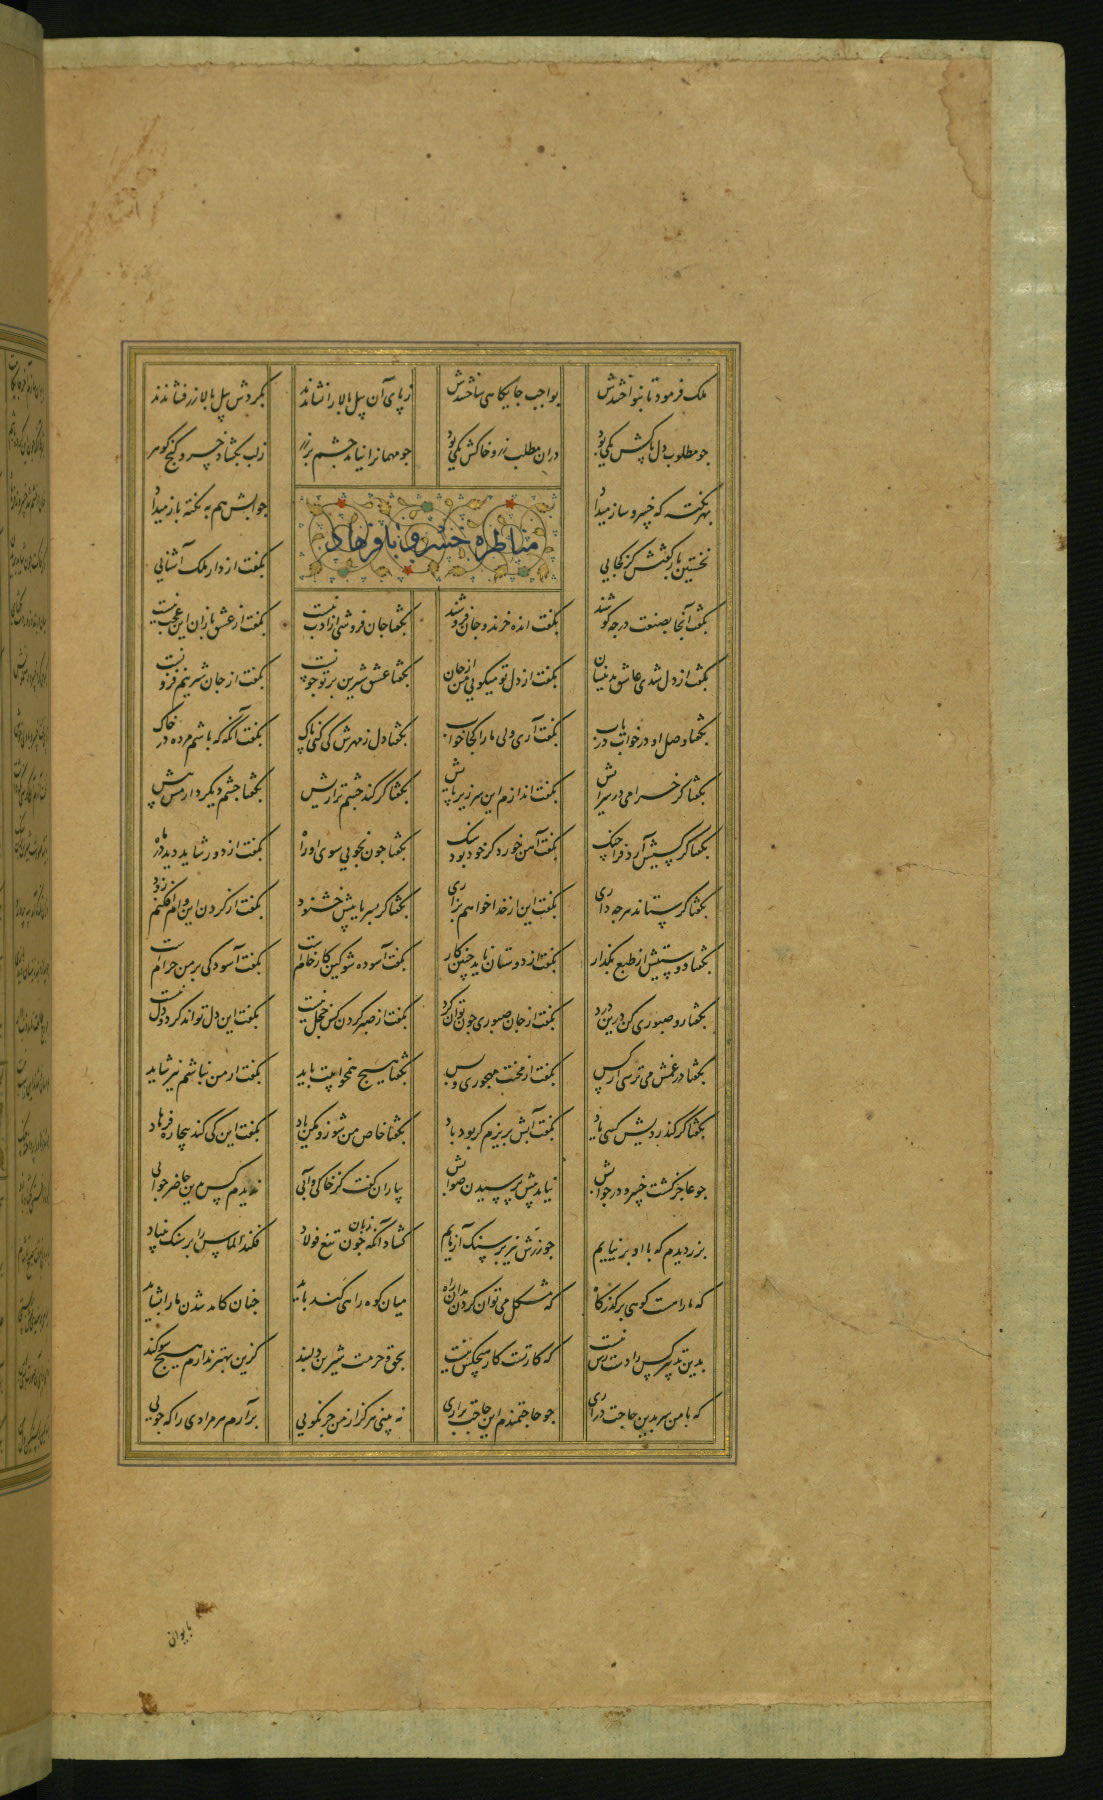 ملک فرمود تا بنواختندش بواجب جایگاهی ساختندش ز پای آن پیل بالا را نشاندند بگردش پیل بالا زر فشاندند
چو مطلوب دل پاکش یکی بود دران مطلب زر و خاکش یکی بود چو مهمانرا نیامد چشم بر زر ز لب بگشاد خسرو گنج گوهر
بهر نکته که خسرو ساز میداد جوابش هم به نکته باز میداد
مناظره خسرو با فرهاد
نخستین بار گفتش کز کجایی بگفت از دار ملک آشنایی
بگفت آنجا بصنعت در چه کوشند بگفت انده خرند و جان فروشند بگفتا جان فروشی از ادب نیست بگفت از عشق بازان این عجب نیست
بگفت از دل شدی عاشق بدینسان بگفت از دل تو میگویی من از جان بگفتا عشق شیرین بر تو چونست بگفت از جان شیرینم فزونست
بگفتا وصل او در خواب دریاب بگفت آری ولی ما را کجا خواب بگفتا دل ز مهرش کی کنی پاک بگفت آنگه که باشم مرده در خاک
بگفتا گر خرامی در سرایش بگفت اندازم این سر زیر پایش بگفتا گر کند چشم ترا ریش بگفتا چشم دیگر دارمش پیش
بگفتا گر کسیش آرد فراچنگ بگفت آهن خورد گر خود بود سنگ بگفتا چون نجویی سوی او راه بگفت از دور شاید دید در ماه
بگفتا گر ستاند هر چه داری بگفت این از خدا خواهم بزاری بگفتا گر بسر یابیش خشنود بگفت از گردن این وام افکنم زود
بگفتا دوستیش از طبع بگذار بگفت از دوستان ناید چنین کار بگفت آسوده شو کین کار خامست بگفت آسودگی بر من حرامست
بگفتا رو صبوری کن درین درد بگفت از جان صبوری چون توان کرد بگفت از صبر کردن کس خجل نیست بگفت این دل تواند کرد و دل نیست
بگفتا در غمش می ترسی از کس بگفت از محنت مهجوری و بس بگفتا هیچ همخوابیت باید بگفت ار من نباشم نیز شاید
بگفتا گر کند زویش کسی یاد بگفت آبش بریزم گر بود باد بگفتا خاص من شو زو مکن یاد بگفت این کی کند بیچاره فرهاد
چو عاجز گشت خسرو در جوابش نیامد پیش پرسیدن صوابش بیاران گفت کز خاکی و آبی ندیدم کس بدین حاضر جوابی
بزر دیدم که با او بر نیایم چو زرش نیز بر سنگ آزمایم گشاد آنگه زبان چون تیغ فولاد فکند الماس را بر سنگ بنیاد
که ما راهست کوهی بر گذرگاه که مشکل می توان کردن بدان راه میان کوه راهی کند باید چنان کامد شدن ما را بشاید
بدین تدبیر کس را دست رس نیست که کار تست کار هیچکس نیست بحق و حرمت شیرین دلبند کزین بهتر ندارم هیچ سوگند
که با من سر بدین حاجت دراری چو حاجتمندم این حاجت براری نه بینی هرگز از من جز نکویی برآرم هر مرادی را که جویی
بایوان